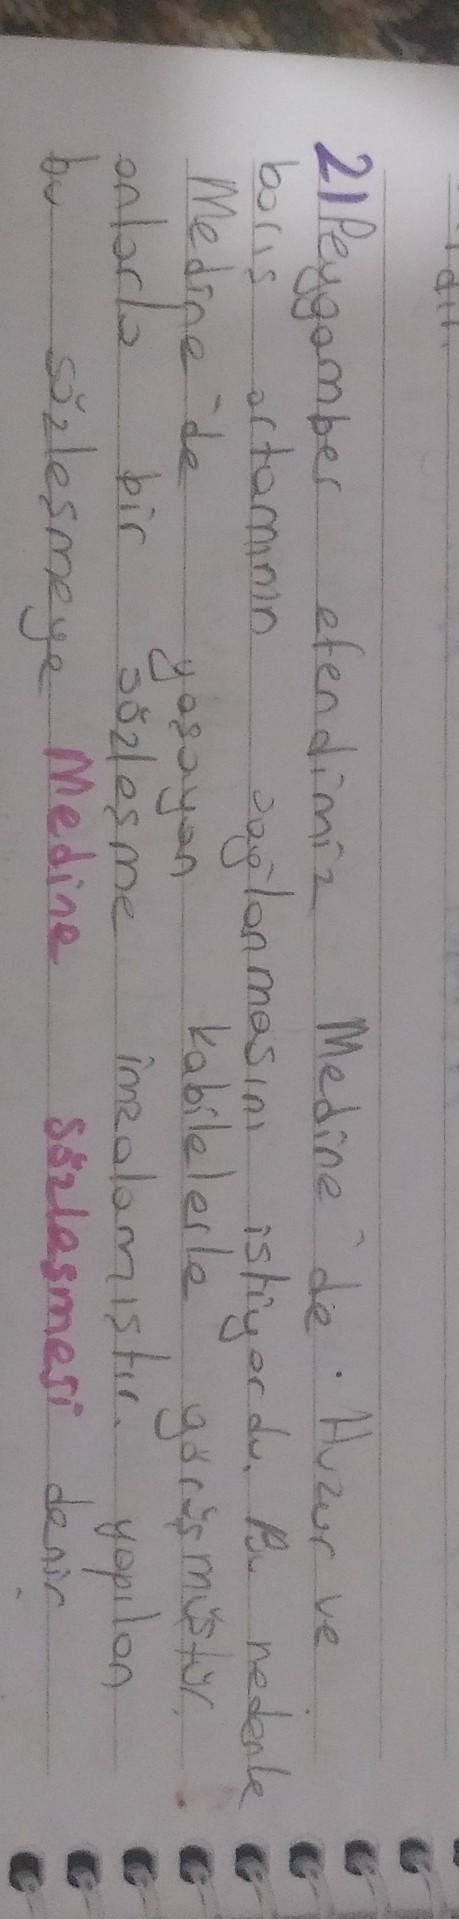 2) Peygamber efendimiz Medine'de. Huzur ve
barış ortamının sağlanmasını istiyordu. Bu nedenle
Medine'de yaşayan kabilelerle görüşmüştür.
onlarla bir sözleşme imzalamıştır. yapılan
bu sözleşmeye Medine sözleşmesi denir